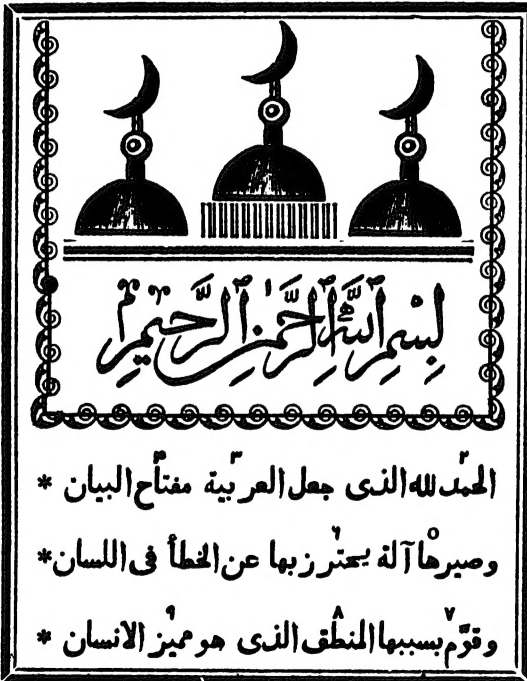 بِسْمِ اللهِ الرَّحْمٰنِ الرَّحِيمِ
الحمد٢ لله الذى جعل العربية٣ مفتاح٤ البيان *
وصيرها٥ آلة يحترز٦ بها عن الخطأ فى اللسان *
وقوّم٧ بسببها المنطق٨ الذى هو مميز٩ الانسان *